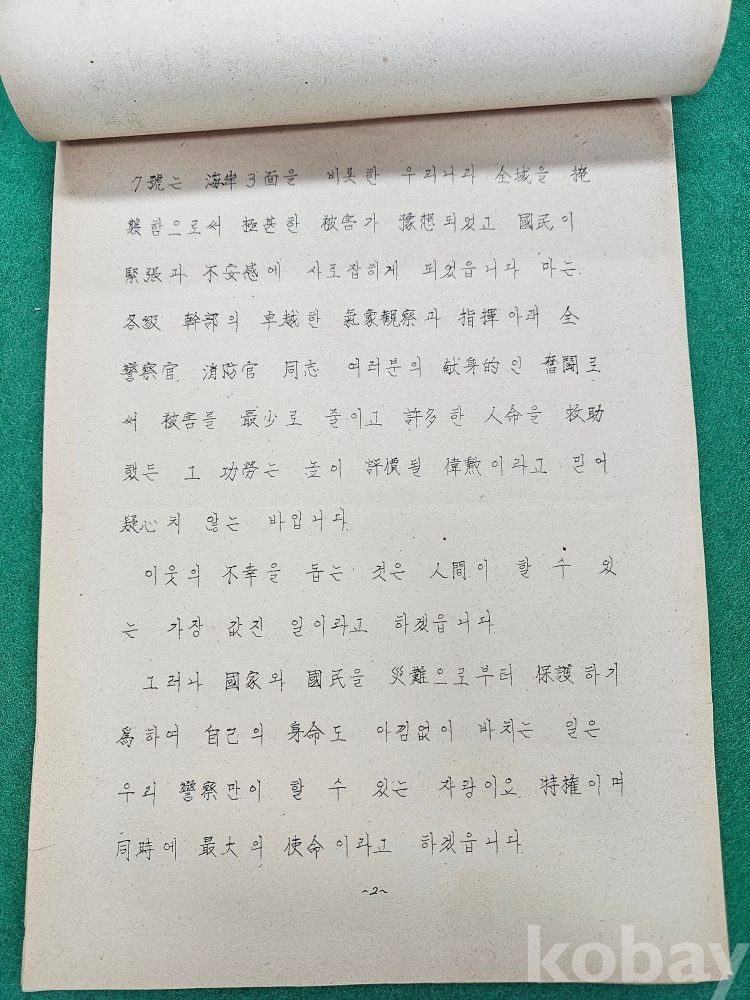 7號는 海岸3面을 비롯한 우리나라 全域을 掩
襲함으로써 極甚한 被害가 豫想되었고 國民이
緊張과 不安感에 사로잡히게 되었읍니다 마는.
各級 幹部의 卓越한 氣象観察과 指揮아래 全
警察官 消防官 同志 여러분의 献身的인 奮鬪로
써 被害를 最少로 줄이고 許多한 人命을 救助
했든 그 功勞는 높이 評價될 偉勲이라고 믿어
疑心치 않는 바입니다.
이웃의 不幸을 돕는 것은 人間이 할 수 있
는 가장 값진 일이라고 하겠읍니다
그러나 國家와 國民을 災難으로부터 保護하기
爲하여 自己의 身命도 아낌없이 바치는 일은
우리 警察만이 할 수 있는 자랑이요 特権이며
同時에 最大의 使命이라고 하겠읍니다.
~2~
kobay